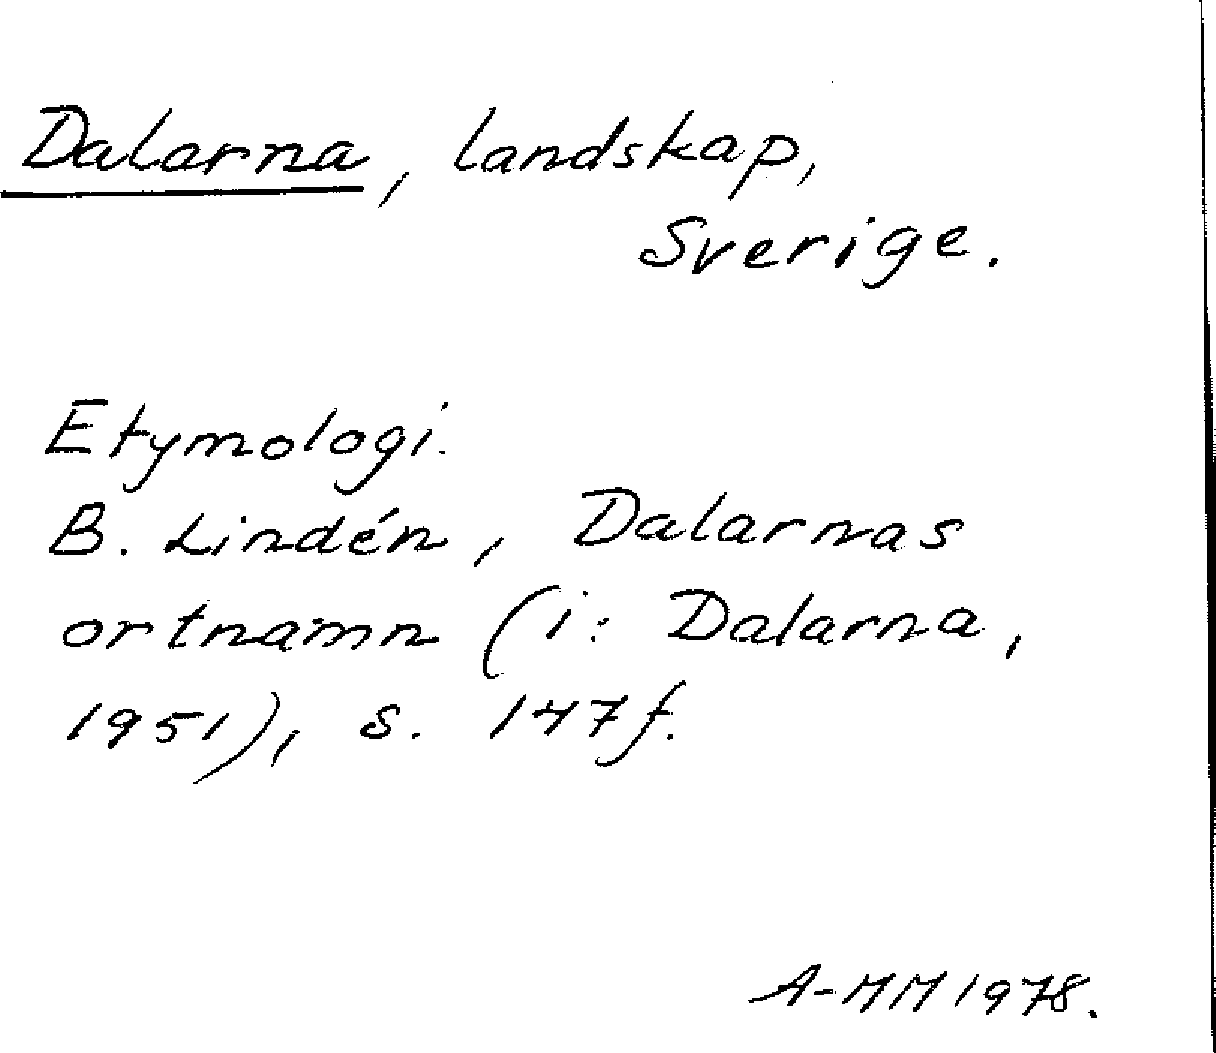 Dalarna, landskap,
Sverige.
Etymologi.
B. Lindén, Dalarnas
ortnamn (i: Dalarna,
1951), s. 147f.
A-MM 1978.